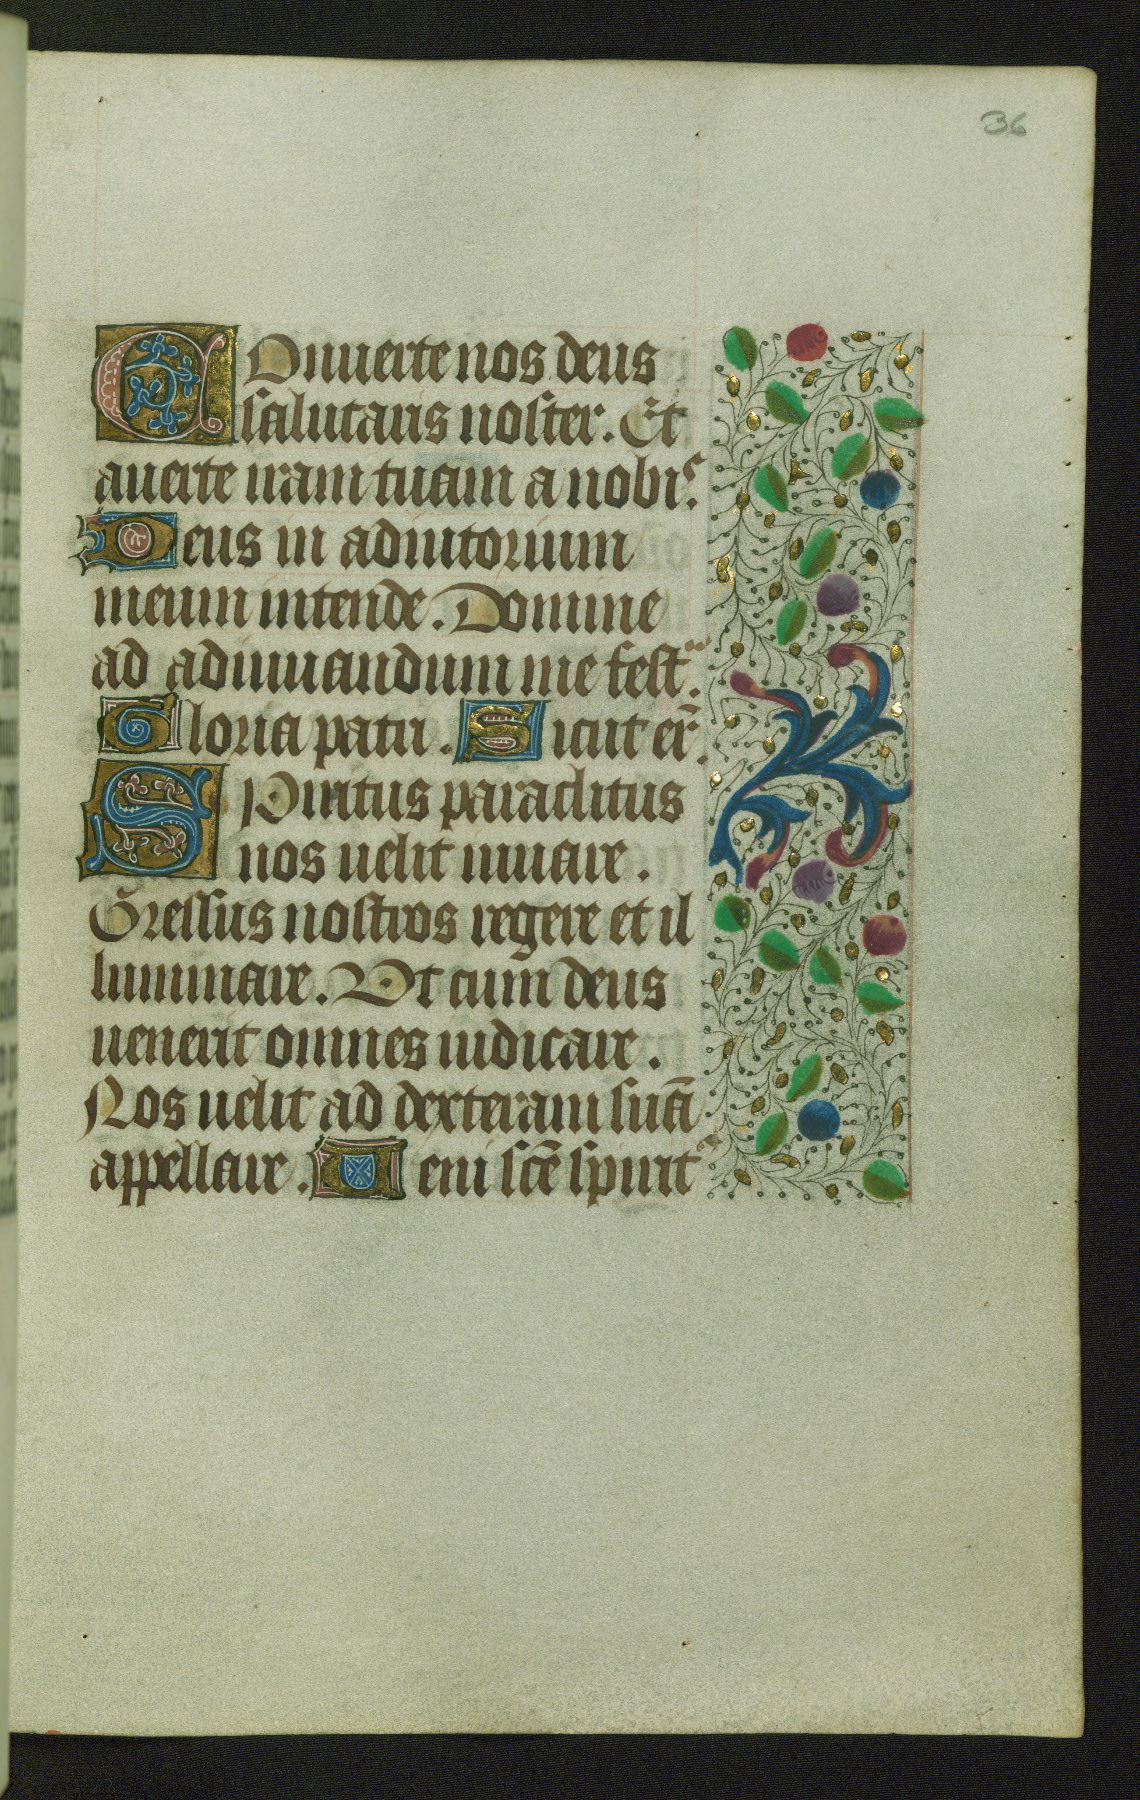 36
Conuerte nos deus
salutaris noster. Et
auerte iram tuam a nobis.
Deus in adiutorium
meum intende. Domine
ad adiuuandum me fest.
Gloria patri. Sicut er̄.
Spiritus paraclitus
nos uelit iuuare.
Gressus nostros regere et il
luminare. Ut cum deus
uenerit omnes iudicare.
Nos uelit ad dexteram suā
appellare. Ueni scē spirit